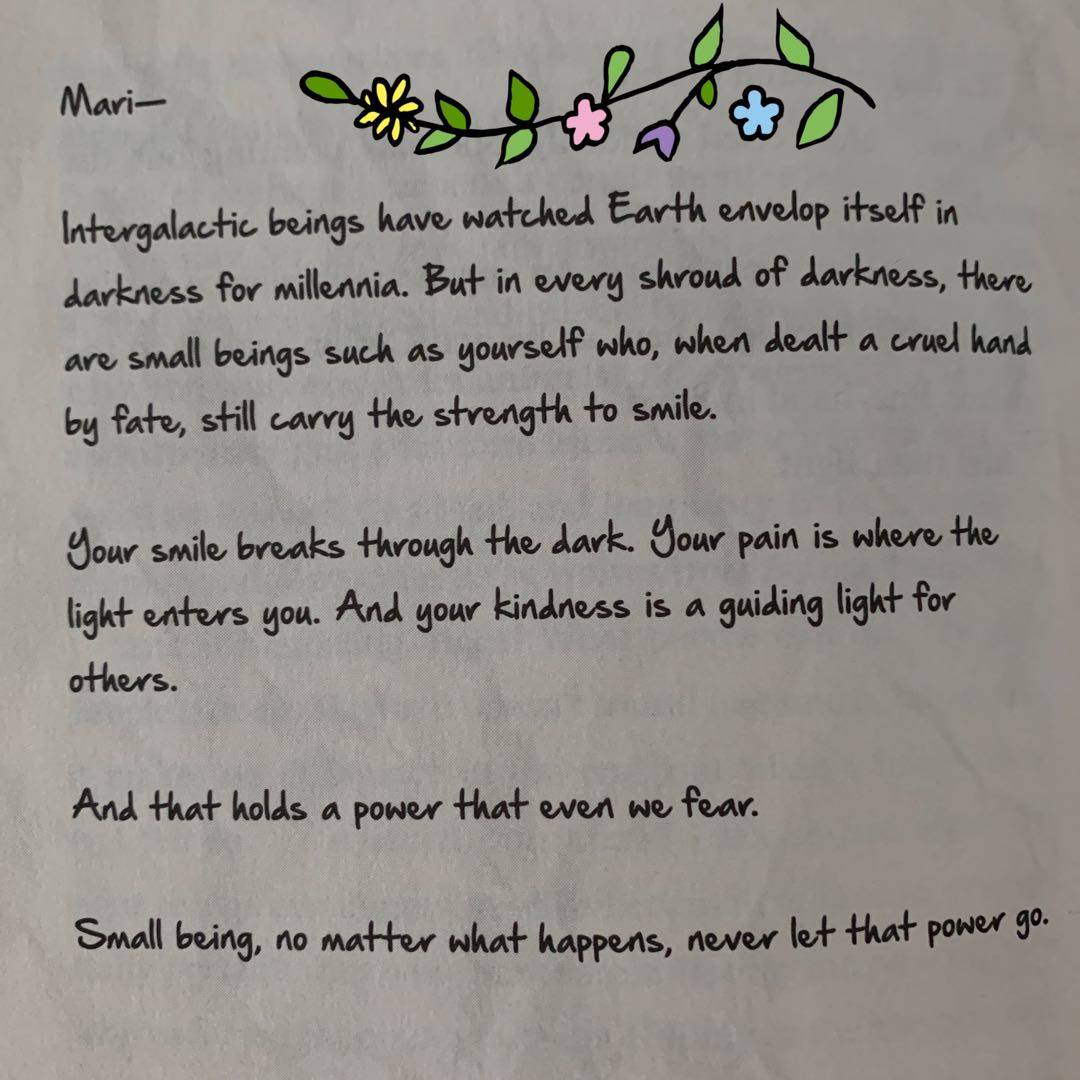 Mari—
Intergalactic beings have watched Earth envelop itself in
darkness for millennia. But in every shroud of darkness, there
are small beings such as yourself who, when dealt a cruel hand
by fate, still carry the strength to smile.
Your smile breaks through the dark. Your pain is where the
light enters you. And your kindness is a guiding light for
others.
And that holds a power that even we fear.
Small being, no matter what happens, never let that power go.